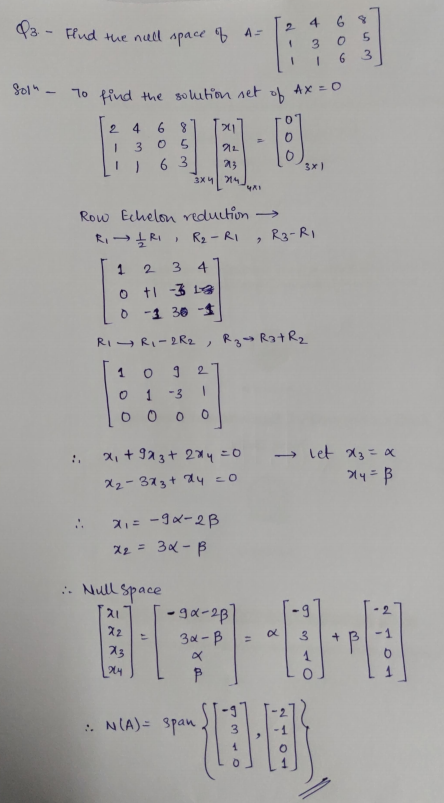 Q3 - Find the null space of A = [2 4 6 8
1 3 0 5
1 1 6 3]
Solⁿ - To find the solution set of AX = 0
[2 4 6 8
1 3 0 5
1 1 6 3]3×4 [x1
x2
x3
x4]4×1 = [0
0
0]3×1
Row Echelon reduction →
R1 → ½ R1 , R2 - R1 , R3 - R1
[1 2 3 4
0 +1 -3 1
0 -1 3 -1]
R1 → R1 - 2R2 , R3 → R3 + R2
[1 0 9 2
0 1 -3 1
0 0 0 0]
∴ x1 + 9x3 + 2x4 = 0 → Let x3 = α
x2 - 3x3 + x4 = 0 x4 = β
∴ x1 = -9α - 2β
x2 = 3α - β
∴ Null Space
[x1
x2
x3
x4] = [-9α - 2β
3α - β
α
β] = α [-9
3
1
0] + β [-2
-1
0
1]
∴ N(A) = Span { [-9
3
1
0] , [-2
-1
0
1] }